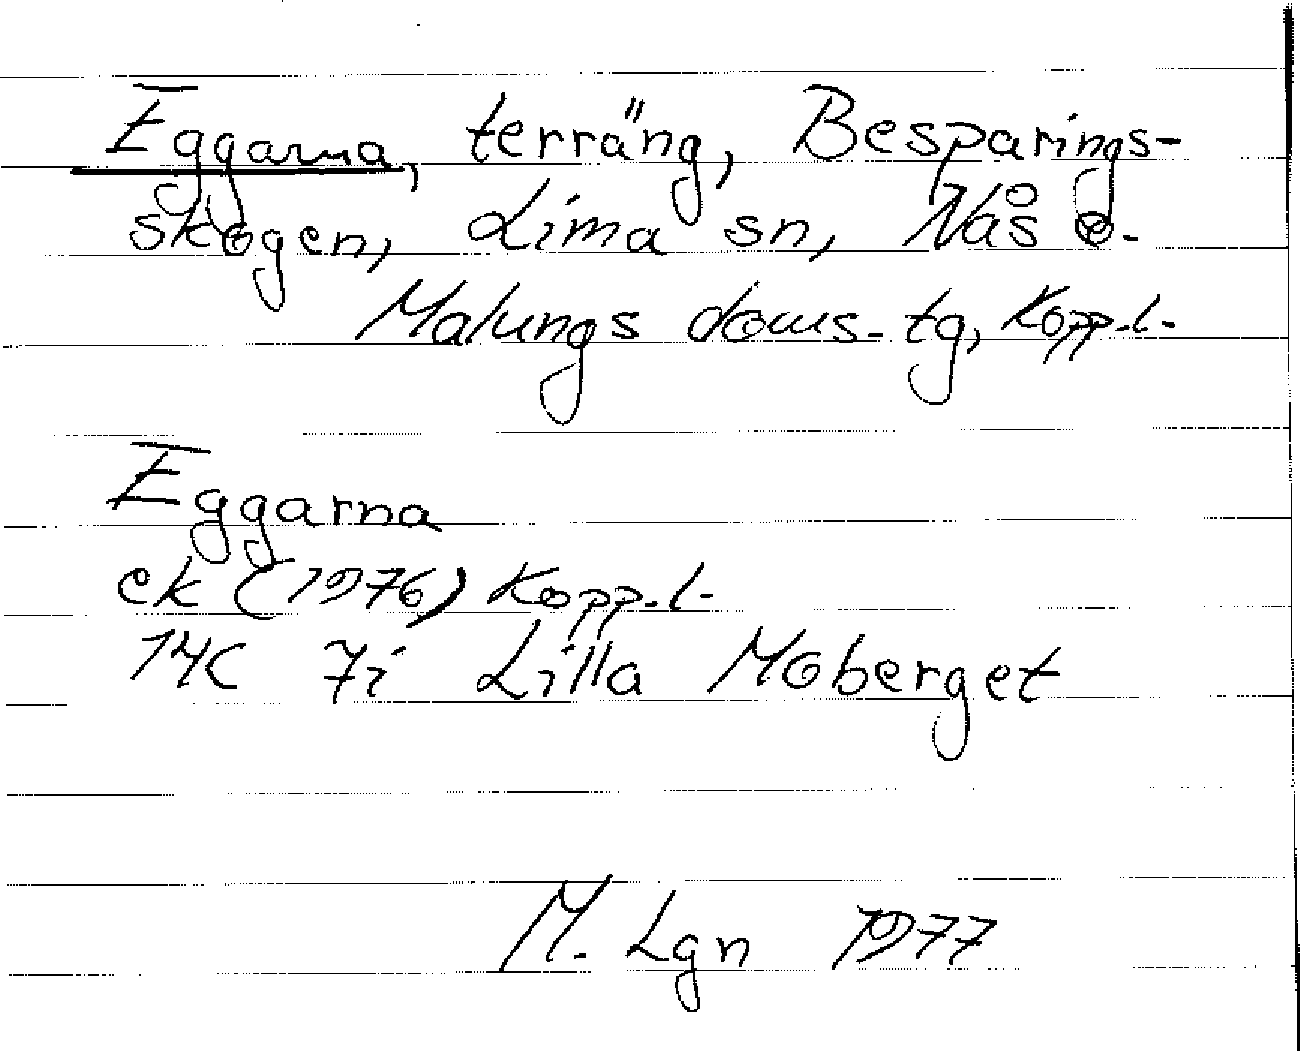 Eggarna, terräng, Besparings-
skogen, Lima sn, Nås o.
Malungs doms. tg, Kopp.l.
Eggarna
ek (1976) Kopp.l.
14C 7i Lilla Moberget
M. Lgn 1977